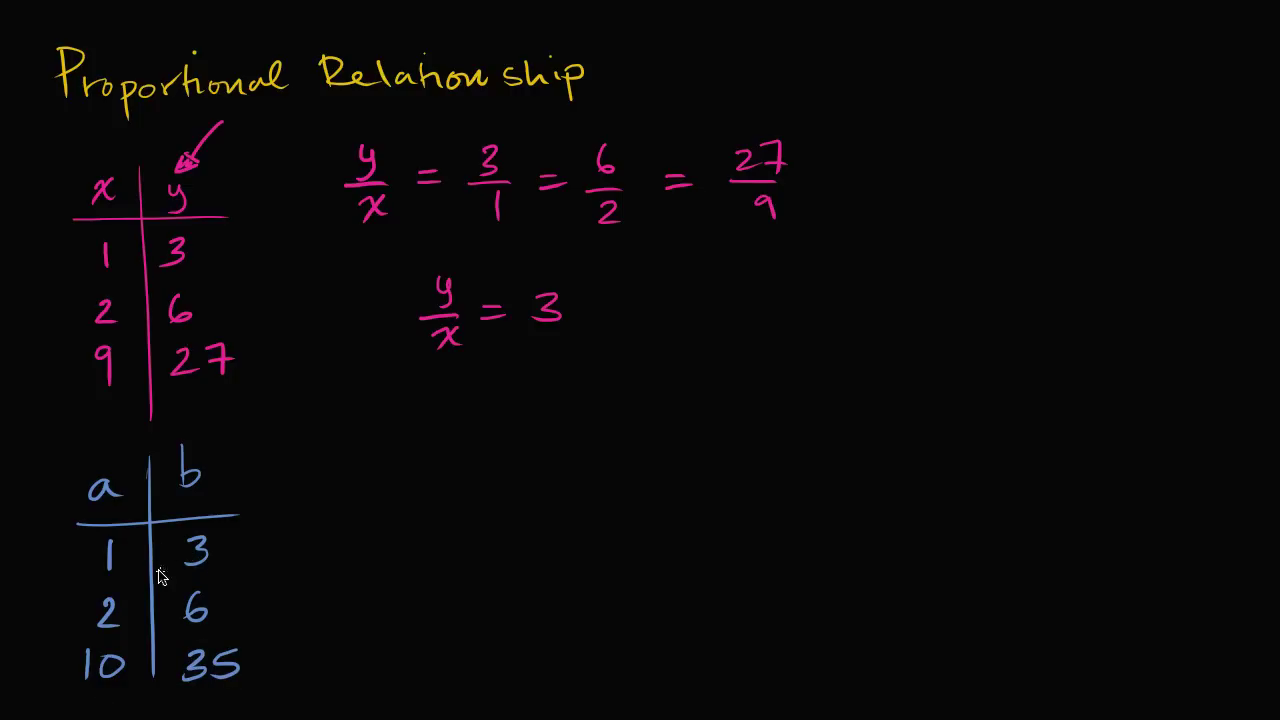 Proportional Relationship
x y
1 3
2 6
9 27
y/x = 3/1 = 6/2 = 27/9
y/x = 3
a b
1 3
2 6
10 35